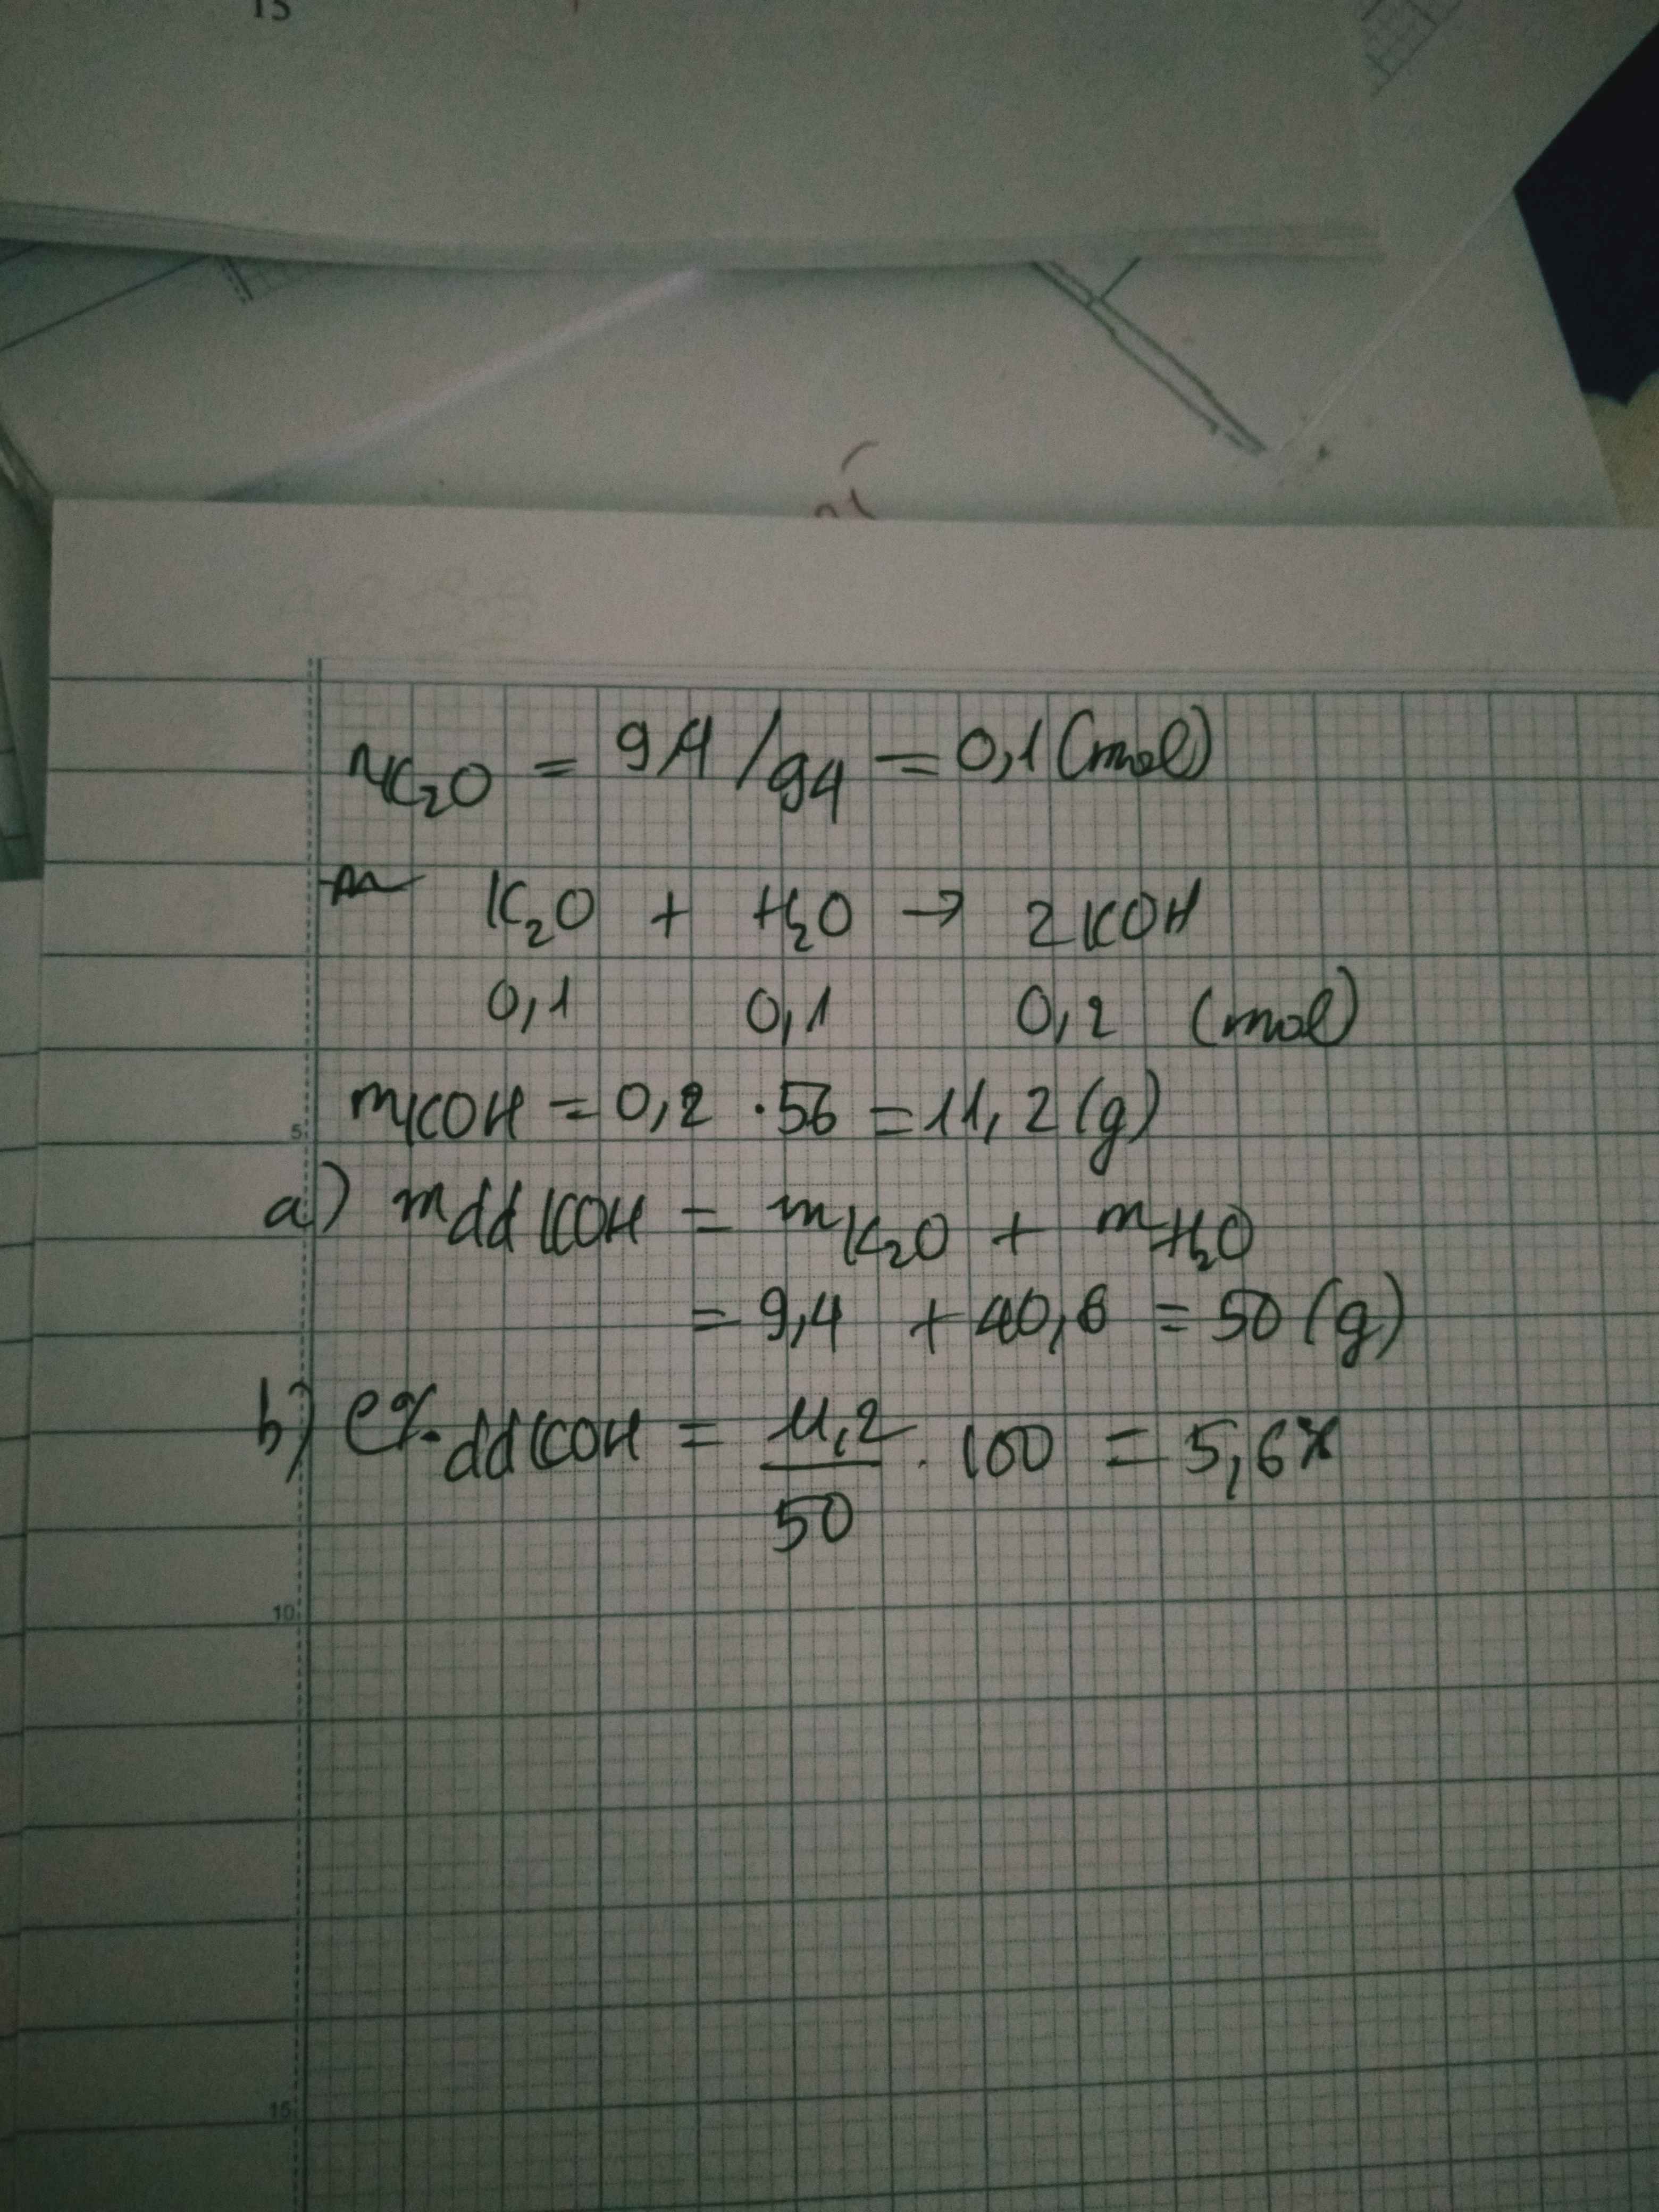 15
nK₂O = 9,4/94 = 0,1 (mol)
K₂O + H₂O → 2KOH
0,1 0,1 0,2 (mol)
mKOH = 0,2 . 56 = 11,2 (g)
5
a) mddKOH = mK₂O + mH₂O
= 9,4 + 40,6 = 50 (g)
b) C% ddKOH = 11,2/50 . 100 = 5,6%
10
15